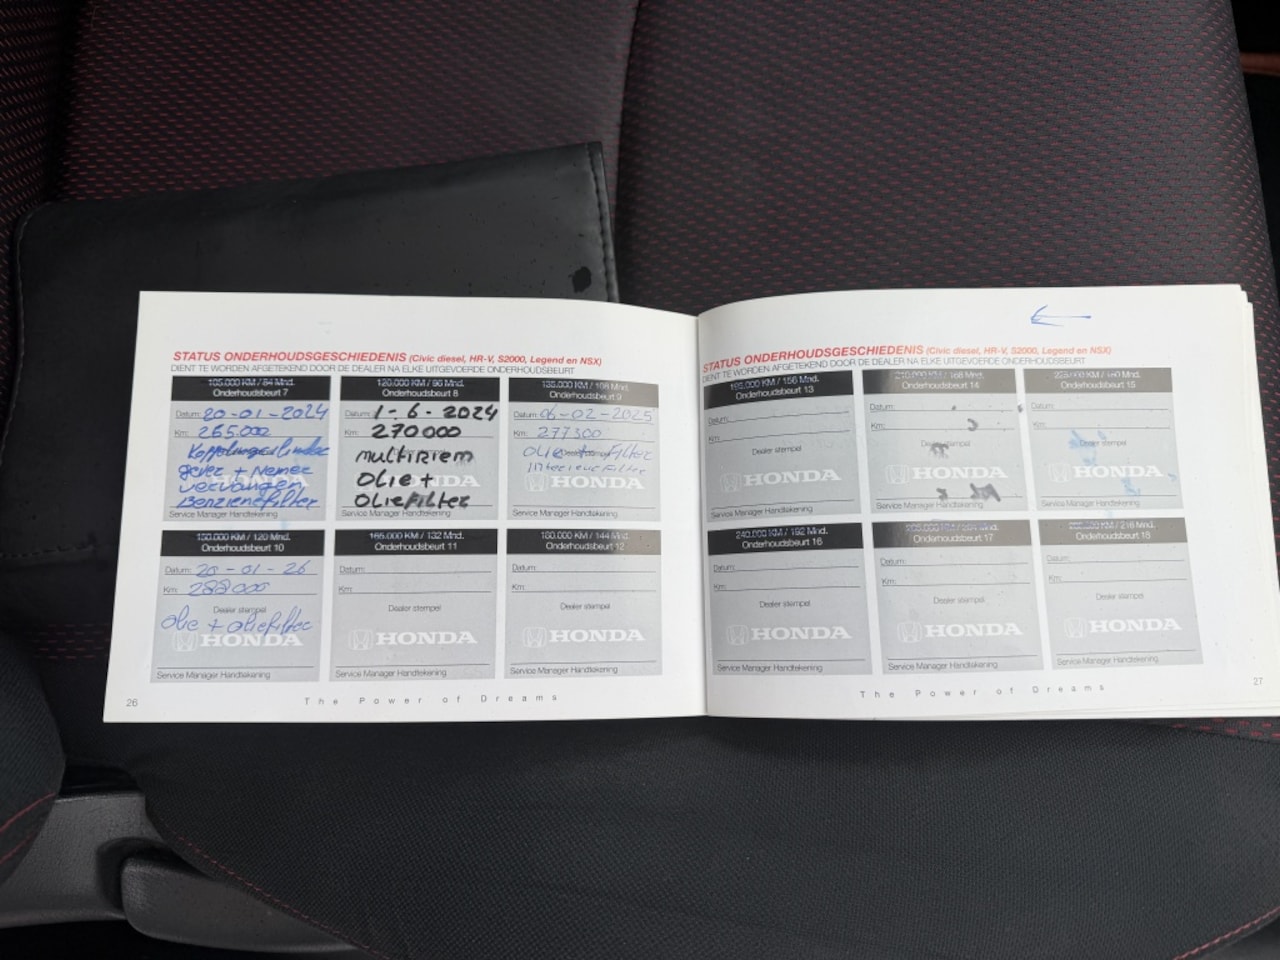 STATUS ONDERHOUDSGESCHIEDENIS (Civic diesel, HR-V, S2000, Legend en NSX)
DIENT TE WORDEN AFGETEKEND DOOR DE DEALER NA ELKE UITGEVOERDE ONDERHOUDSBEURT
105.000 KM / 84 Mnd.
Onderhoudsbeurt 7
Datum: 20-01-2024
Km: 265.000
gever + Nemer
vervangen
Benzienefilter
HONDA
Service Manager Handtekening
120.000 KM / 96 Mnd.
Onderhoudsbeurt 8
Datum: 1-6-2024
Km: 270000
multiriem
olie +
oliefilter
Service Manager Handtekening
135.000 KM / 108 Mnd.
Onderhoudsbeurt 9
Datum: 06-02-2025
Km: 277300
Dealer stempel
olie + filter
HONDA
Service Manager Handtekening
150.000 KM / 120 Mnd.
Onderhoudsbeurt 10
Datum: 20-01-26
Km: 288000
Dealer stempel
olie + oliefilter
HONDA
Service Manager Handtekening
165.000 KM / 132 Mnd.
Onderhoudsbeurt 11
Datum:
Km:
Dealer stempel
HONDA
Service Manager Handtekening
180.000 KM / 144 Mnd.
Onderhoudsbeurt 12
Datum:
Km:
Dealer stempel
HONDA
Service Manager Handtekening
26
The Power of Dreams
STATUS ONDERHOUDSGESCHIEDENIS (Civic diesel, HR-V, S2000, Legend en NSX)
DIENT TE WORDEN AFGETEKEND DOOR DE DEALER NA ELKE UITGEVOERDE ONDERHOUDSBEURT
195.000 KM / 156 Mnd.
Onderhoudsbeurt 13
Datum:
Km:
Dealer stempel
HONDA
Service Manager Handtekening
210.000 KM / 168 Mnd.
Onderhoudsbeurt 14
Datum:
Km:
Dealer stempel
HONDA
Service Manager Handtekening
225.000 KM / 180 Mnd.
Onderhoudsbeurt 15
Datum:
Km:
Dealer stempel
HONDA
Service Manager Handtekening
240.000 KM / 192 Mnd.
Onderhoudsbeurt 16
Datum:
Km:
Dealer stempel
HONDA
Service Manager Handtekening
Onderhoudsbeurt 17
Datum:
Km:
Dealer stempel
HONDA
Service Manager Handtekening
216 Mnd.
Onderhoudsbeurt 18
Datum:
Km:
Dealer stempel
HONDA
Service Manager Handtekening
The Power of Dreams
27